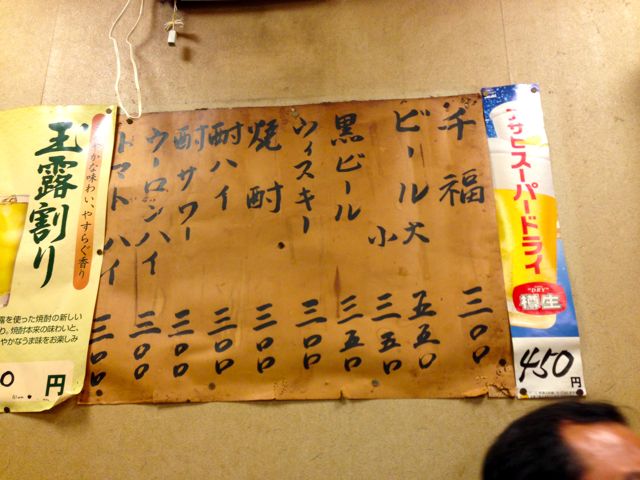 アサヒスーパードライ
"DRY"
樽生
450円
千福 三〇〇
ビール大 五五〇
小 三五〇
黒ビール 三五〇
ウイスキー 三〇〇
焼酎 三〇〇
酎ハイ 三〇〇
酎サワー 三〇〇
ウーロンハイ 三〇〇
トマトハイ 三〇〇
やかな味わい、やすらぐ香り
玉露割り
露を使った焼酎の新しい
り。焼酎本来の味わいと、
やかなうま味をお楽しみ
0円